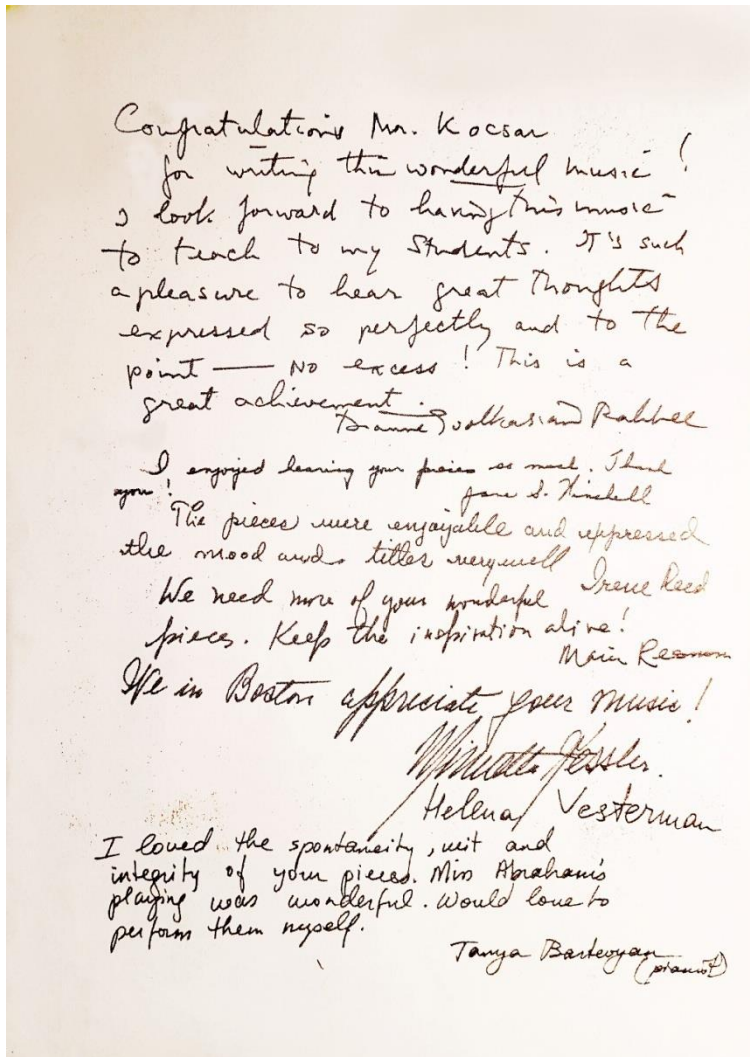 Congratulations Mr. Kocsar
for writing this wonderful music !
I look forward to having this music
to teach to my Students. It's such
a pleasure to hear great Thoughts
expressed so perfectly and to the
point — No excess ! This is a
great achievement.
Dianne Goolkasian Rahbee
I enjoyed hearing your pieces so much. Thank
you!
Jane S.
The pieces were enjoyable and
the mood and titles very well Irene Reed
We need more of your wonderful
pieces. Keep the inspiration alive!
We in Boston appreciate your music!
Kessler.
Helena Vesterman
I loved the spontaneity, wit and
integrity of your pieces. Miss Abraham's
playing was wonderful. Would love to
perform them myself.
Tanya Bartevyan
(pianist)